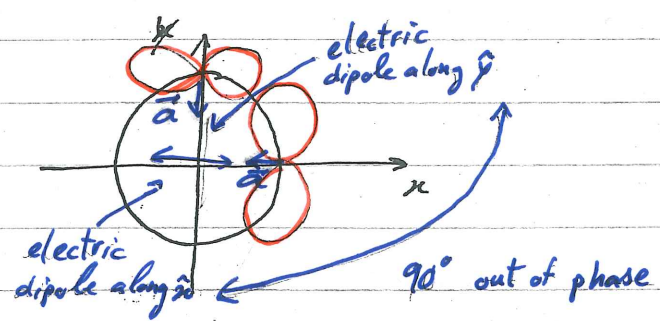 y
electric
dipole along ŷ
a⃗
a⃗
x
electric
dipole along x̂
90° out of phase